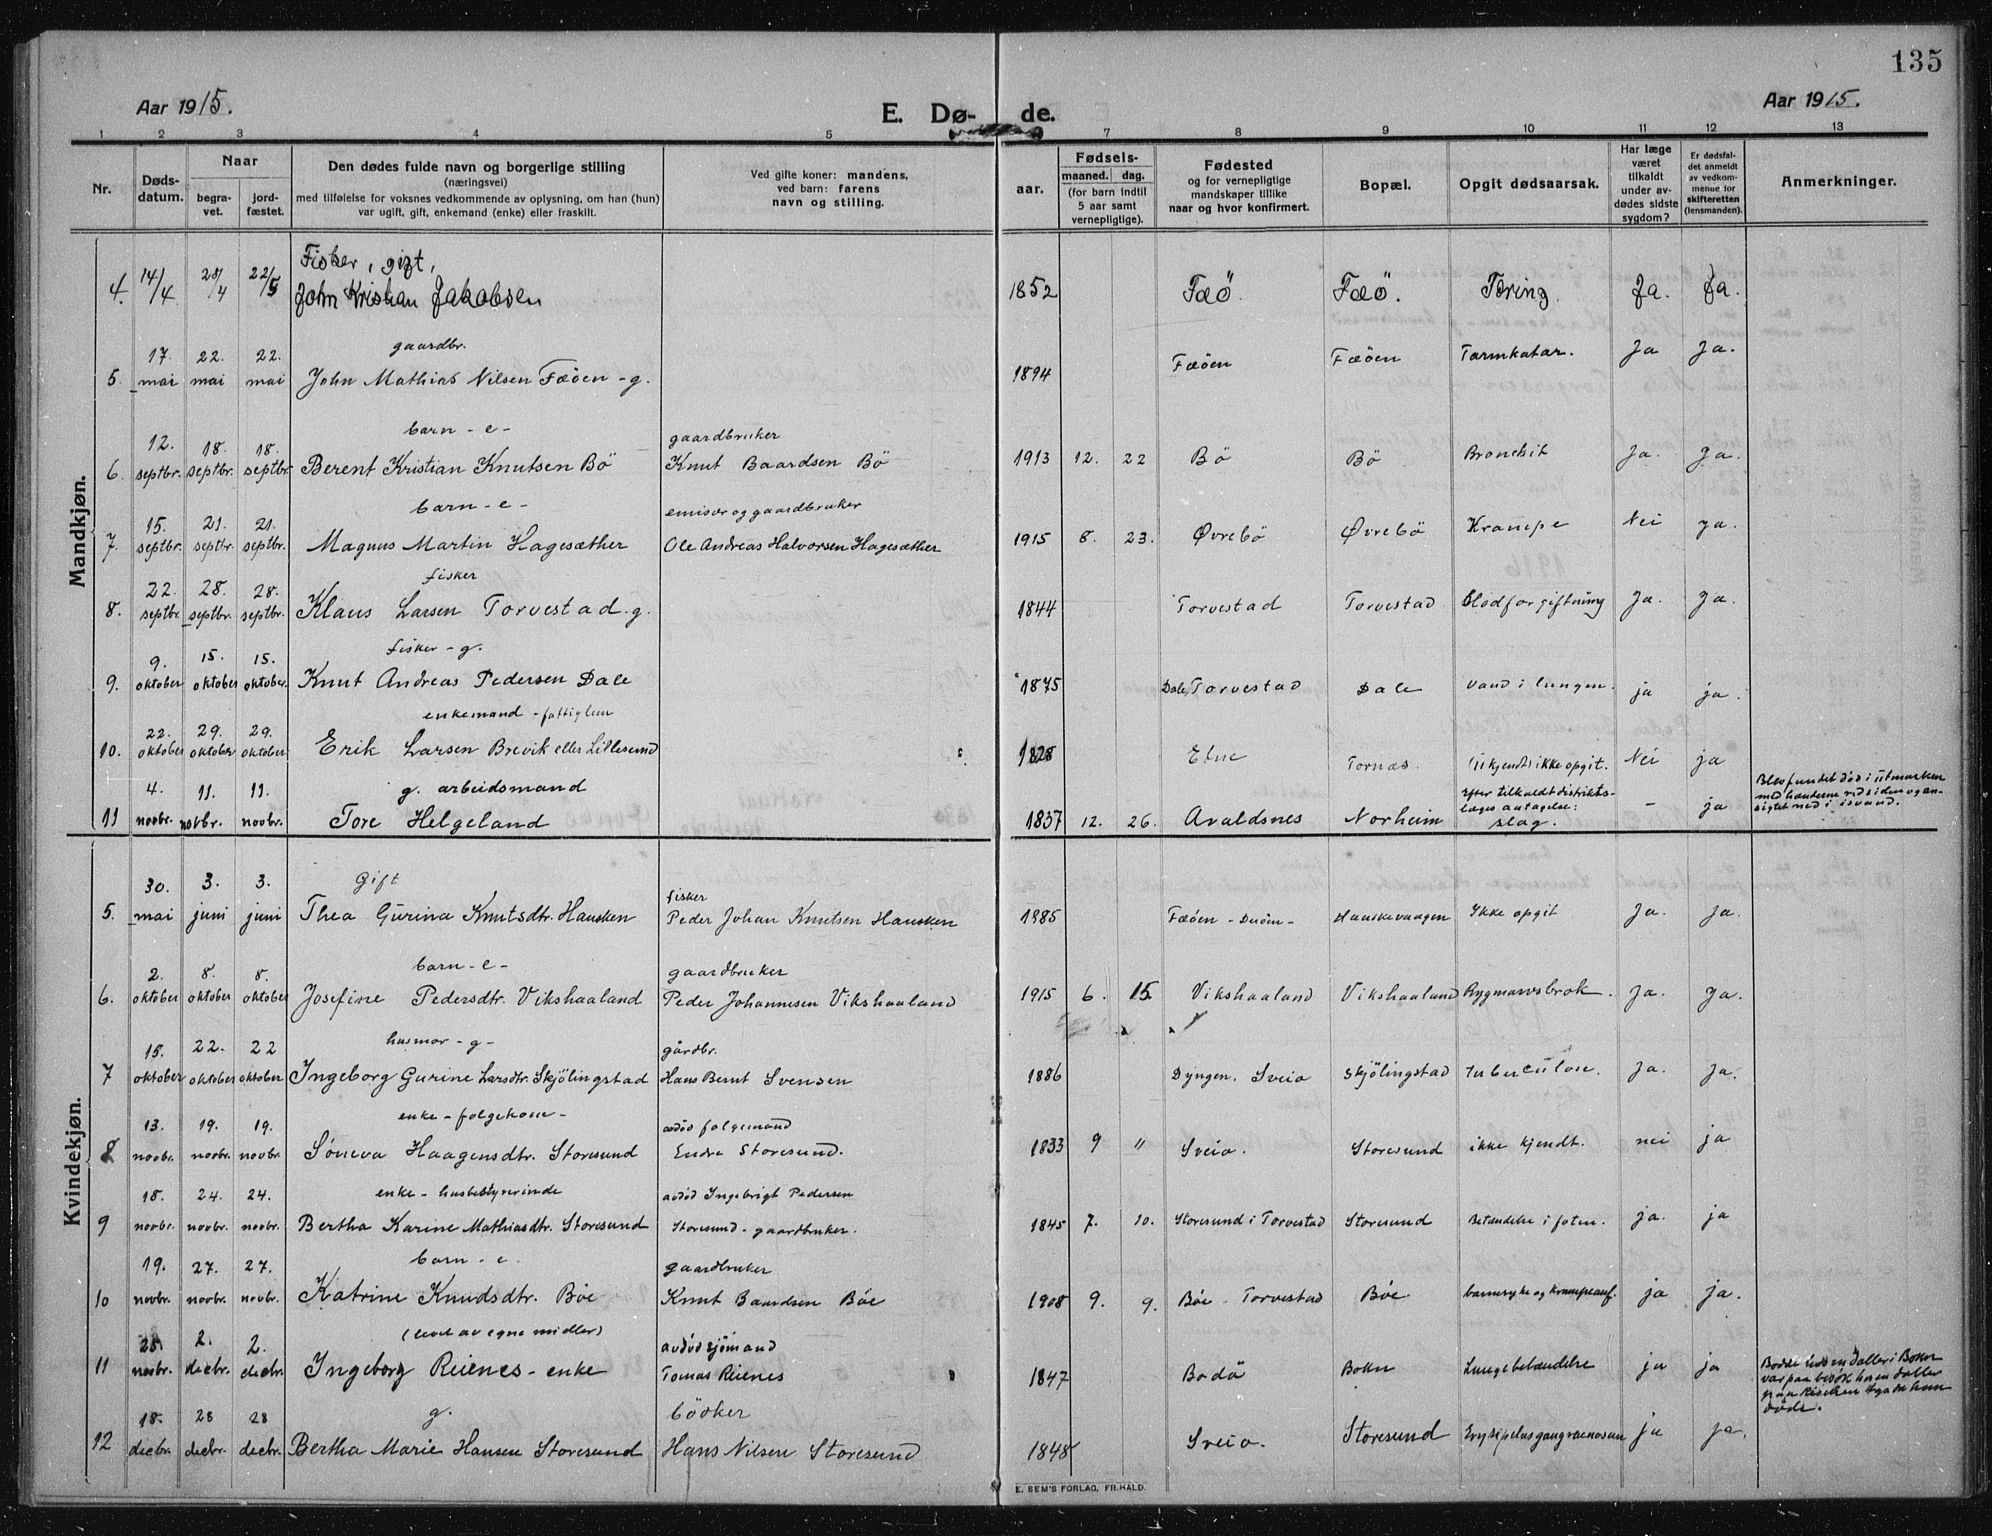 135
Aar 1915.
E. Dø-
de.
Aar 1915.
1 2 3 4 5 7 8 9 10 11 12 13
Nr.
Døds-
datum.
Naar
begra-
vet.
jord-
fæstet.
Den dødes fulde navn og borgerlige stilling
(næringsvei)
med tilføielse for voksnes vedkommende av oplysning, om han (hun)
var ugift, gift, enkemand (enke) eller fraskilt.
Ved gifte koner: mandens,
ved barn: farens
navn og stilling.
aar.
Fødsels-
maaned. dag.
(for barn indtil
5 aar samt
vernepligtige).
Fødested
og for vernepligtige
mandskaper tillike
naar og hvor konfirmert.
Bopæl.
Opgit dødsaarsak.
Har læge
været
tilkaldt
under av-
dødes sidste
sygdom?
Er dødsfal-
det anmeldt
av vedkom-
mende for
skifteretten
(lensmanden).
Anmerkninger.
Mandkjøn.
Fisker, gift,
4. 14/4 28/4 22/5 John Kristian Jakobsen 1852 Fæö. Fæö. Tæring. Ja. Ja.
17. 22. 22. gaardbr.
5. mai mai mai John Mathias Nilsen Fæöen - g. 1894 Fæöen Fæöen Tarmkatar. Ja Ja.
12. 18. 18. barn - e - gaardbruker
6. septbr. septbr. septbr. Berent Kristian Knutsen Bö Knut Baardsen Bö 1913 12. 22 Bö Bö Bronchit Ja. Ja.
15. 21. 21. barn - e - emisær og gaardbruker
7. septbr. septbr. septbr. Magnus Martin Hagesæther Ole Andreas Halvorsen Hagesæther 1915 8. 23. Øvrebö Øvrebö Krampe Nei ja.
22. 28. 28. fisker
8. septbr. septbr. septbr. Klaus Larsen Torvestad - g. 1844 Torvestad Torvestad Blodforgiftning Ja. Ja.
9. 15. 15. fisker - g.
9. oktober oktober oktober. Knut Andreas Pedersen Dale 1875 Dale, Torvestad Dale Vand i lungen. ja ja.
22. 29. 29. enkemand - fattiglem
10. oktober oktober oktober Erik Larsen Brevik eller Lillesund 1828 Etne Tornæs. (Ukjendt) ikke opgit. Nei ja
4. 11. 11. g. arbeidsmand
11 novbr. novbr. novbr. Tore Helgeland 1837 12. 26. Avaldsnes Norheim
Efter tilkaldt distrikts-
læges antagelse:
slag. - ja
Blev fundet död i utmarken
med hænderne ved siden og an-
sigtet ned i isvand.
Kvindekjøn.
30. 3. 3. Gift fisker
5. mai juni juni Thea Gurina Knutsdtr. Hausken Peder Johan Knutsen Hausken 1985 Fæöen - Hauskevaagen Ikke opgit Ja. Ja.
2. 8. 8. barn - e - gaardbruker
6. oktober oktober oktober Josefine Pedersdtr. Vikshaaland Peder Johannesen Vikshaaland 1915 6. 15. Vikshaaland Vikshaaland Rygmarvsbrok. Ja. ja.
15. 22. 22 husmor - g - gårdbr.
7 oktober oktober oktober Ingeborg Gurine Larsdtr. Skjölingstad Hans Bernt Svensen 1886 Dyngen. Sveio Skjölingstad Tuberculose. Ja. Ja.
13. 19. 19. enke - folgekone - avdöd folgemand
8 novbr. novbr. novbr. Söneva Haagensdtr. Storesund Endre Storesund. 1833 9 " Sveio. Storesund ikke kjendt. nei ja
18. 24. 24. enke - husbestyrerinde avdöd Ingebrigt Pedersen
9 novbr. novbr. novbr. Bertha Karine Mathiasdtr. Storesund Storesund - gaardbruker. 1845 7. 10. Storesund i Torvestad Storesund Betændelse i foten. ja. ja
19. 27. 27. barn - e. gaardbruker
10 novbr. novbr. novbr. Katrine Knudsdtr. Böe Knut Baardsen Böe 1908 9. 9. Böe - Torvestad Böe. barnesyke og krampeanf. ja ja.
25. 2. 2. (levet av egne midler) avdöd sjömand
11 novbr. decbr. decbr. Ingeborg Reienes - enke Tomas Reienes 1847 Bodö Bokn Lungebetændelse ja ja
Bodde hos en datter i Bokn
var paa besök hos en datter
da hun
döde.
18. 28 28 g. bödker
12 decbr. decbr. decbr. Bertha Marie Hansen Storesund Hans Nilsen Storesund 1848 Sveio. Storesund Erysipelas gangraenosum ja ja.
E. SEM'S FORLAG, FR.HALD.